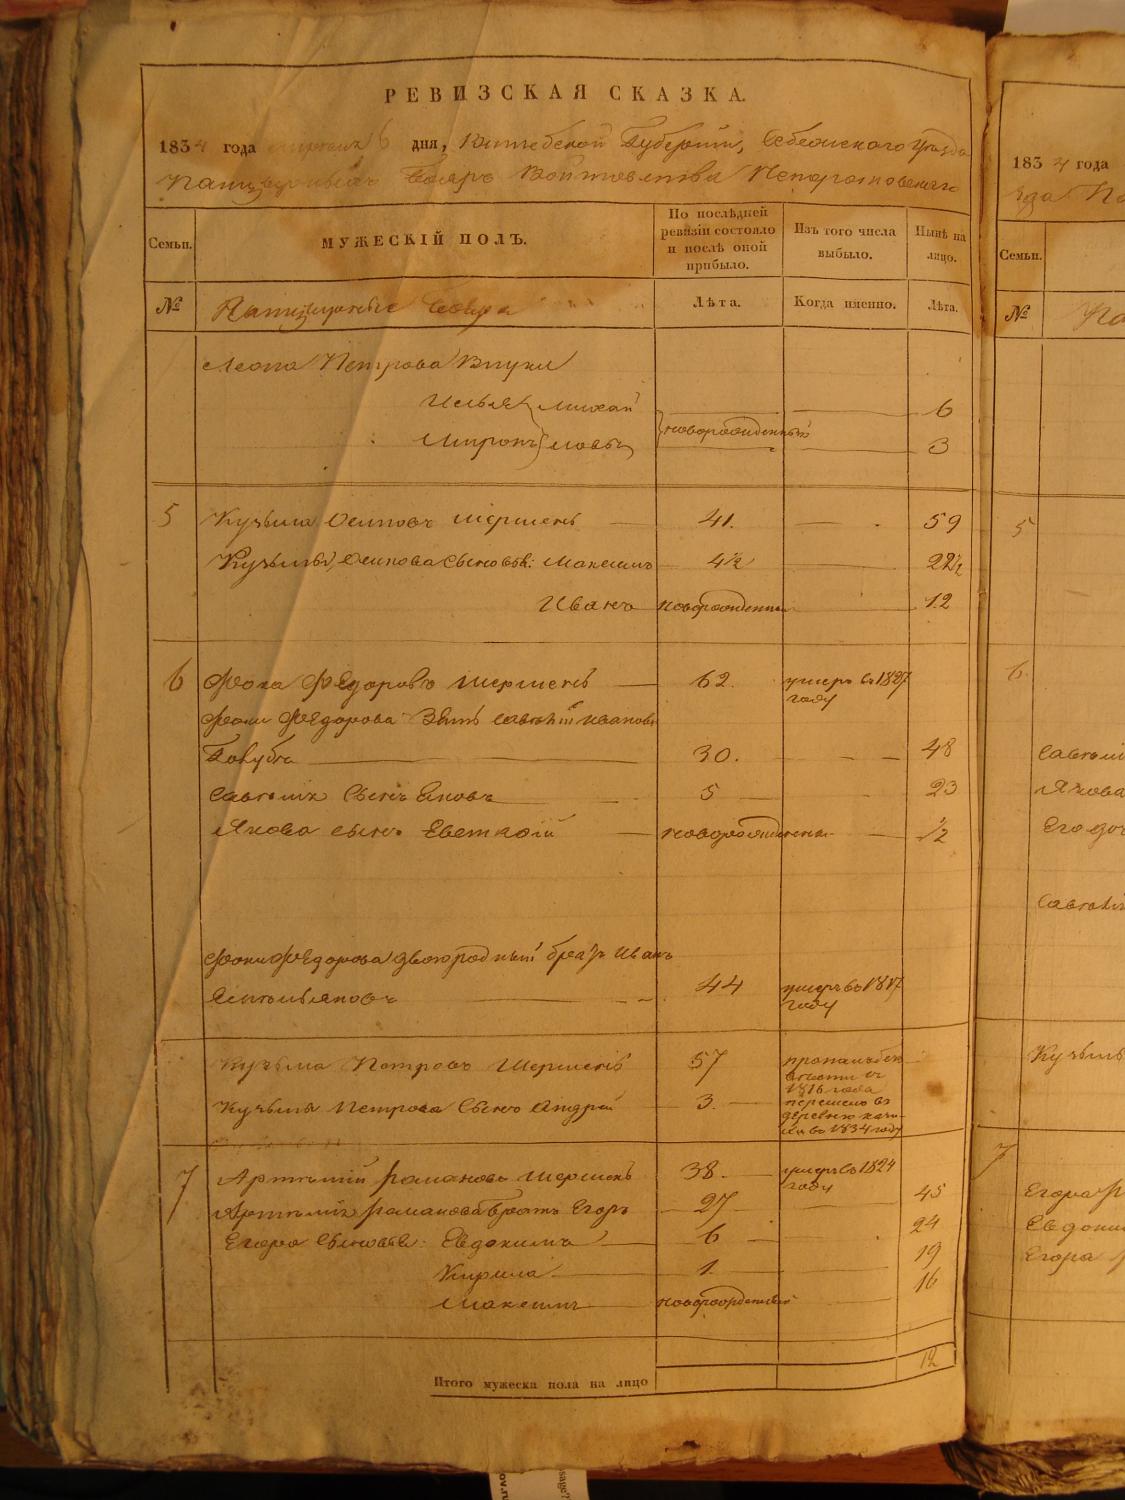 РЕВИЗСКАЯ СКАЗКА.
1834 года 6 дня, Витебской Губернии, Себежского Уезда
Панцырныхъ Бояръ Войтовства Непоротовскаго
Семьи.
МУЖЕСКІЙ ПОЛЪ.
По послѣдней ревизіи состояло и послѣ оной прибыло.
Изъ того числа выбыло.
Нынѣ на лицо.
№
Панцырные Бояра
Лѣта.
Когда именно.
Лѣта.
Леона Петрова Внуки
Илья Михай 6
Миронъ ловы новорожденный 3
5 Кузьма Осиповъ Шершень 41. 59
Кузьмы Осипова Сыновья: Максимъ 4½ 22½
Иванъ новорожденный 12
6 Фока Федоровъ Шершень 62. умеръ въ 1827 году
Фоки Федорова Зять Савелій Ивановъ
Голубка 30. 48
Савелія Сынъ Яковъ 5 23
Якова сынъ Евстафій новорожденный ½
Фоки Федорова двоюродный братъ Иванъ
Емельяновъ 44 умеръ въ 1817 году
Кузьма Петровъ Шершень 57 пропалъ безъ вѣсти въ 1816 года
Кузьмы Петрова Сынъ Андрей 3. перешелъ въ деревню въ 1834 году
7 Артемій Романовъ Шершень 38. умеръ въ 1824 году
Артемія Романова братъ Егоръ 27 45
Егора Сыновья: Евдокимъ 6 24
Кирила 1. 19
Максимъ новорожденный 16
Итого мужеска пола на лицо 12
183 4 года
Семьи.
№
5
6.
Якова
Его доч
Кузьмы
7
Егора
Евдоким
Егора